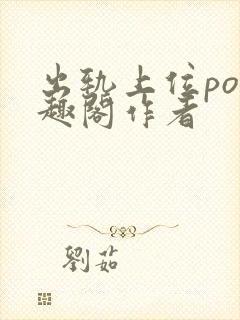 出轨上位po
趣阁作者
劉茹